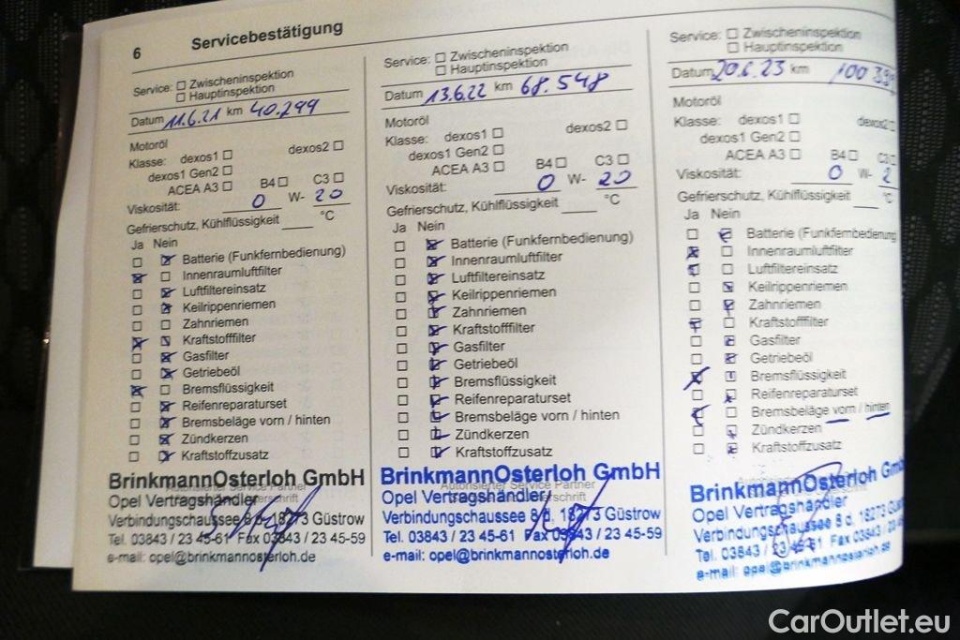 6 Servicebestätigung
Service: ☐ Zwischeninspektion
☐ Hauptinspektion
Datum 11.6.21 km 40.299
Motoröl
Klasse: dexos1 ☐ dexos2 ☐
dexos1 Gen2 ☐
ACEA A3 ☐ B4 ☐ C3 ☐
Viskosität: 0 W- 20
Gefrierschutz, Kühlflüssigkeit ____ °C
Ja Nein
Batterie (Funkfernbedienung)
Innenraumluftfilter
Luftfiltereinsatz
Keilrippenriemen
Zahnriemen
Kraftstofffilter
Gasfilter
Getriebeöl
Bremsflüssigkeit
Reifenreparaturset
Bremsbeläge vorn / hinten
Zündkerzen
Kraftstoffzusatz
BrinkmannOsterloh GmbH
Opel Vertragshändler
Verbindungschaussee 8 d, 18273 Güstrow
Tel. 03843 / 23 45-61 Fax 03843 / 23 45-59
e-mail: opel@brinkmannosterloh.de
Service: ☐ Zwischeninspektion
☐ Hauptinspektion
Datum 13.6.22 km 68.548
Motoröl
Klasse: dexos1 ☐ dexos2 ☐
dexos1 Gen2 ☐
ACEA A3 ☐ B4 ☐ C3 ☐
Viskosität: 0 W- 20
Gefrierschutz, Kühlflüssigkeit ____ °C
Ja Nein
Batterie (Funkfernbedienung)
Innenraumluftfilter
Luftfiltereinsatz
Keilrippenriemen
Zahnriemen
Kraftstofffilter
Gasfilter
Getriebeöl
Bremsflüssigkeit
Reifenreparaturset
Bremsbeläge vorn / hinten
Zündkerzen
Kraftstoffzusatz
BrinkmannOsterloh GmbH
Autorisierter Service Partner
Opel Vertragshändler
Verbindungschaussee 8 d, 18273 Güstrow
Tel. 03843 / 23 45-61 Fax 03843 / 23 45-59
e-mail: opel@brinkmannosterloh.de
Service: ☐ Zwischeninspektion
☐ Hauptinspektion
Datum 20.6.23 km
Motoröl
Klasse: dexos1 ☐ dexos2
dexos1 Gen2 ☐
ACEA A3 ☐ B4 ☐ C3
Viskosität: 0 W- 2
Gefrierschutz, Kühlflüssigkeit ____ °C
Ja Nein
Batterie (Funkfernbedienung
Innenraumluftfilter
Luftfiltereinsatz
Keilrippenriemen
Zahnriemen
Kraftstofffilter
Gasfilter
Getriebeöl
Bremsflüssigkeit
Reifenreparaturset
Bremsbeläge vorn / hinten
Zündkerzen
Kraftstoffzusatz
BrinkmannOsterloh
Opel Vertragshändler
Verbindungschaussee 8 d, 18273
Tel. 03843 / 23 45-61 Fax 03843
e-mail: opel@brinkmannosterloh.de
CarOutlet.eu